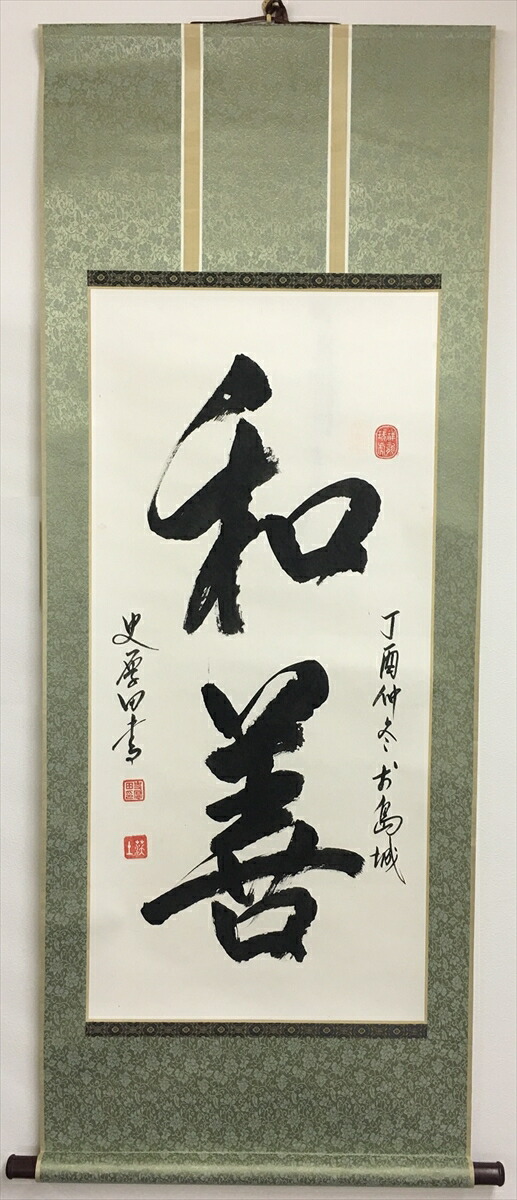 和善
丁酉仲冬於島城
史厚田書